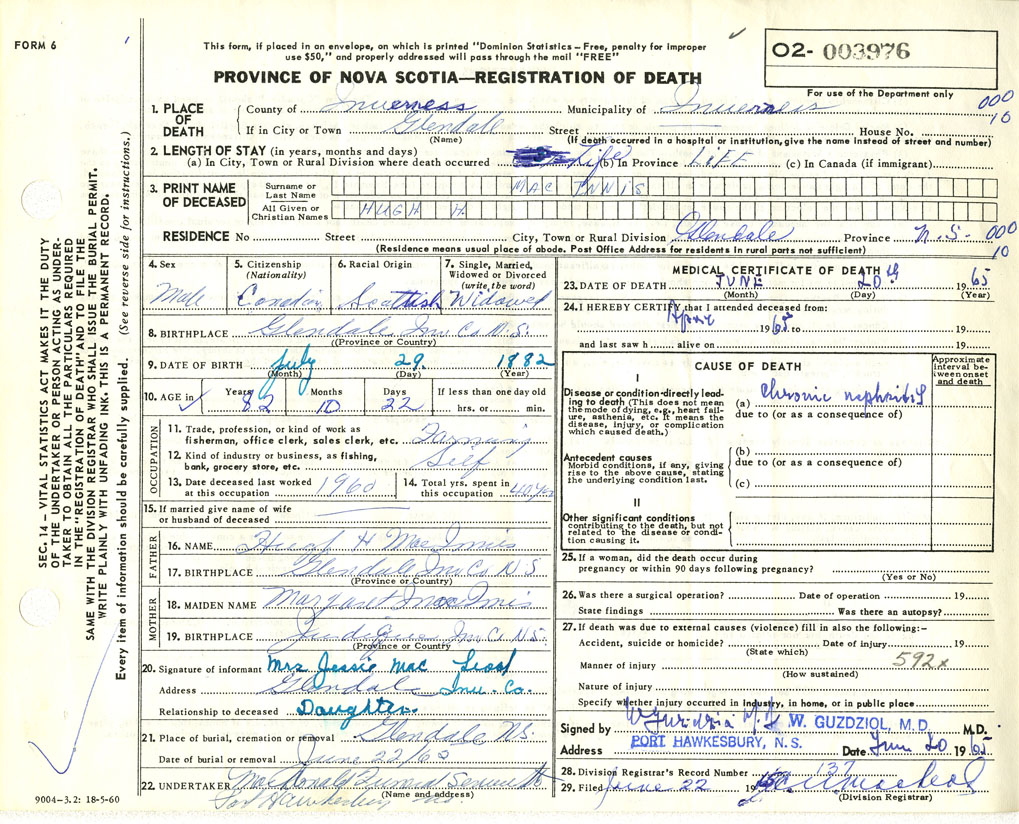 FORM 6
This form, if placed in an envelope, on which is printed "Dominion Statistics – Free, penalty for improper
use $50," and properly addressed will pass through the mail "FREE"
PROVINCE OF NOVA SCOTIA—REGISTRATION OF DEATH
O2- 003976
For use of the Department only
SEC. 14 – VITAL STATISTICS ACT MAKES IT THE DUTY
OF THE UNDERTAKER OR PERSON ACTING AS UNDER-
TAKER TO OBTAIN ALL THE PARTICULARS REQUIRED
IN THE "REGISTRATION OF DEATH" AND TO FILE THE
SAME WITH THE DIVISION REGISTRAR WHO SHALL ISSUE THE BURIAL PERMIT.
WRITE PLAINLY WITH UNFADING INK. THIS IS A PERMANENT RECORD.
Every item of information should be carefully supplied. (See reverse side for instructions.)
1. PLACE OF DEATH
County of Inverness Municipality of Inverness 000
10
If in City or Town Glendale Street House No.
(Name) (If death occurred in a hospital or institution, give the name instead of street and number)
2. LENGTH OF STAY (in years, months and days)
(a) In City, Town or Rural Division where death occurred Life (b) In Province LIFE (c) In Canada (if immigrant)
3. PRINT NAME OF DECEASED
Surname or Last Name MAC INNIS
All Given or Christian Names HUGH H
RESIDENCE No Street City, Town or Rural Division Glendale Province N.S. 000
10
(Residence means usual place of abode. Post Office Address for residents in rural parts not sufficient)
4. Sex Male
5. Citizenship (Nationality) Canadian
6. Racial Origin Scottish
7. Single, Married, Widowed or Divorced (write the word) Widowed
8. BIRTHPLACE Glendale Inv. Co N.S.
(Province or Country)
9. DATE OF BIRTH July 29. 1882
(Month) (Day) (Year)
10. AGE in Years 82 Months 10 Days 22 If less than one day old hrs. or min.
OCCUPATION
11. Trade, profession, or kind of work as fisherman, office clerk, sales clerk, etc. Farming
12. Kind of industry or business, as fishing, bank, grocery store, etc. Self
13. Date deceased last worked at this occupation 1960
14. Total yrs. spent in this occupation 40 yrs
15. If married give name of wife or husband of deceased
FATHER
16. NAME Hugh H MacInnis
17. BIRTHPLACE Glendale Inv Co N S
(Province or Country)
MOTHER
18. MAIDEN NAME Margaret MacInnis
19. BIRTHPLACE Judique Inv C. N.S.
(Province or Country)
20. Signature of informant Mrs Jessie Mac Leod
Address Glendale Inv. Co.
Relationship to deceased Daughter.
21. Place of burial, cremation or removal Glendale N.S.
Date of burial or removal June 22/65
22. UNDERTAKER MacDonald Funeral Service
(Name and address)
Port Hawkesbury
9004–3.2: 18-5-60
MEDICAL CERTIFICATE OF DEATH
23. DATE OF DEATH JUNE 20th 1965
(Month) (Day) (Year)
24. I HEREBY CERTIFY that I attended deceased from:
1965 to 19
and last saw h alive on 19
CAUSE OF DEATH
Approximate interval between onset and death
I
Disease or condition directly leading to death (This does not mean the mode of dying, e.g., heart failure, asthenia, etc. It means the disease, injury, or complication which caused death.)
(a) Chronic nephritis
due to (or as a consequence of)
Antecedent causes
Morbid conditions, if any, giving rise to the above cause, stating the underlying condition last.
(b)
due to (or as a consequence of)
(c)
II
Other significant conditions
contributing to the death, but not related to the disease or condition causing it.
25. If a woman, did the death occur during
pregnancy or within 90 days following pregnancy?
(Yes or No)
26. Was there a surgical operation? Date of operation 19
State findings Was there an autopsy?
27. If death was due to external causes (violence) fill in also the following:–
Accident, suicide or homicide? Date of injury 19
(State which)
Manner of injury 592x
(How sustained)
Nature of injury
Specify whether injury occurred in Industry, in home, or in public place
Signed by W Guzdziol M.D. W. GUZDZIOL, M.D. M.D.
Address PORT HAWKESBURY, N. S. Date Jun 20 1965
28. Division Registrar's Record Number 137
29. Filed June 22 19
(Division Registrar)